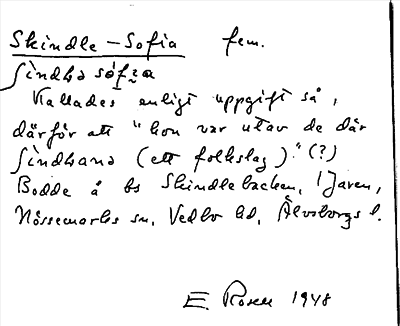 Skindle-Sofia fem.
sindhə sófia
Kallades enligt uppgift så,
därför att "hon var utav de där
sindhana (ett folkslag)." (?)
Bodde å bs Skindlebacken, Jaren,
Nössemarks sn, Vedbo hd, Älvsborgs l.
E. Rosell 1948